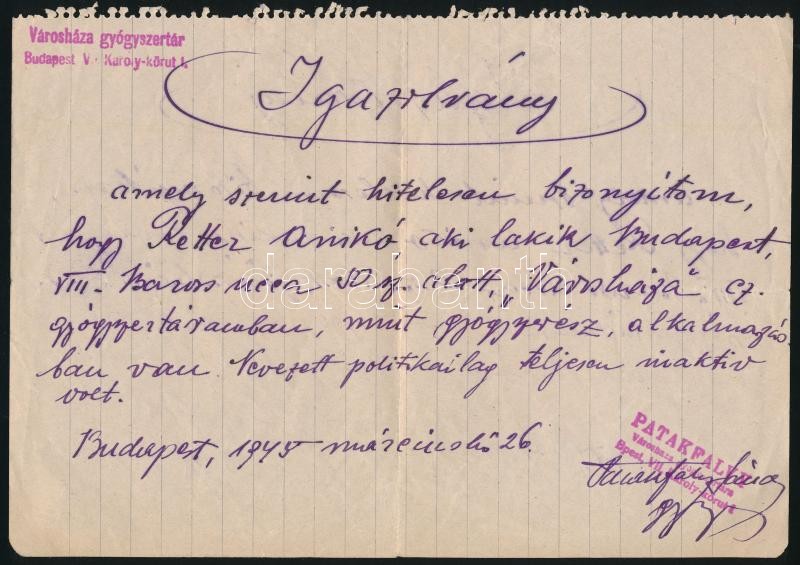 Városháza gyógyszertár
Budapest V. Károly-körut 1.
Igazolvány
amely szerint hitelesen bizonyítom,
hogy Retter Anikó aki lakik Budapest,
VIII. Baross ucca 50 sz. alatt, "Városháza" cz.
gyógyszertáramban, mint gyógyszerész, alkalmazás-
ban van. Nevezett politikailag teljesen inaktiv
volt.
Budapest, 1945 március hó 26.
PATAKFALVI
Városháza
Bpest, VII. Károly-körut 1
gysz
darabanth.com